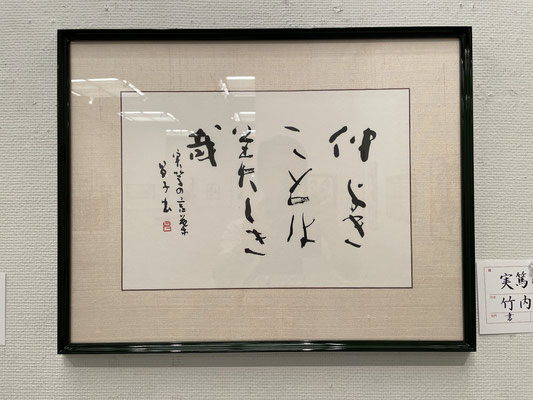 仲よき
ことは
美しき
哉
実篤の言葉
実篤
竹内
書